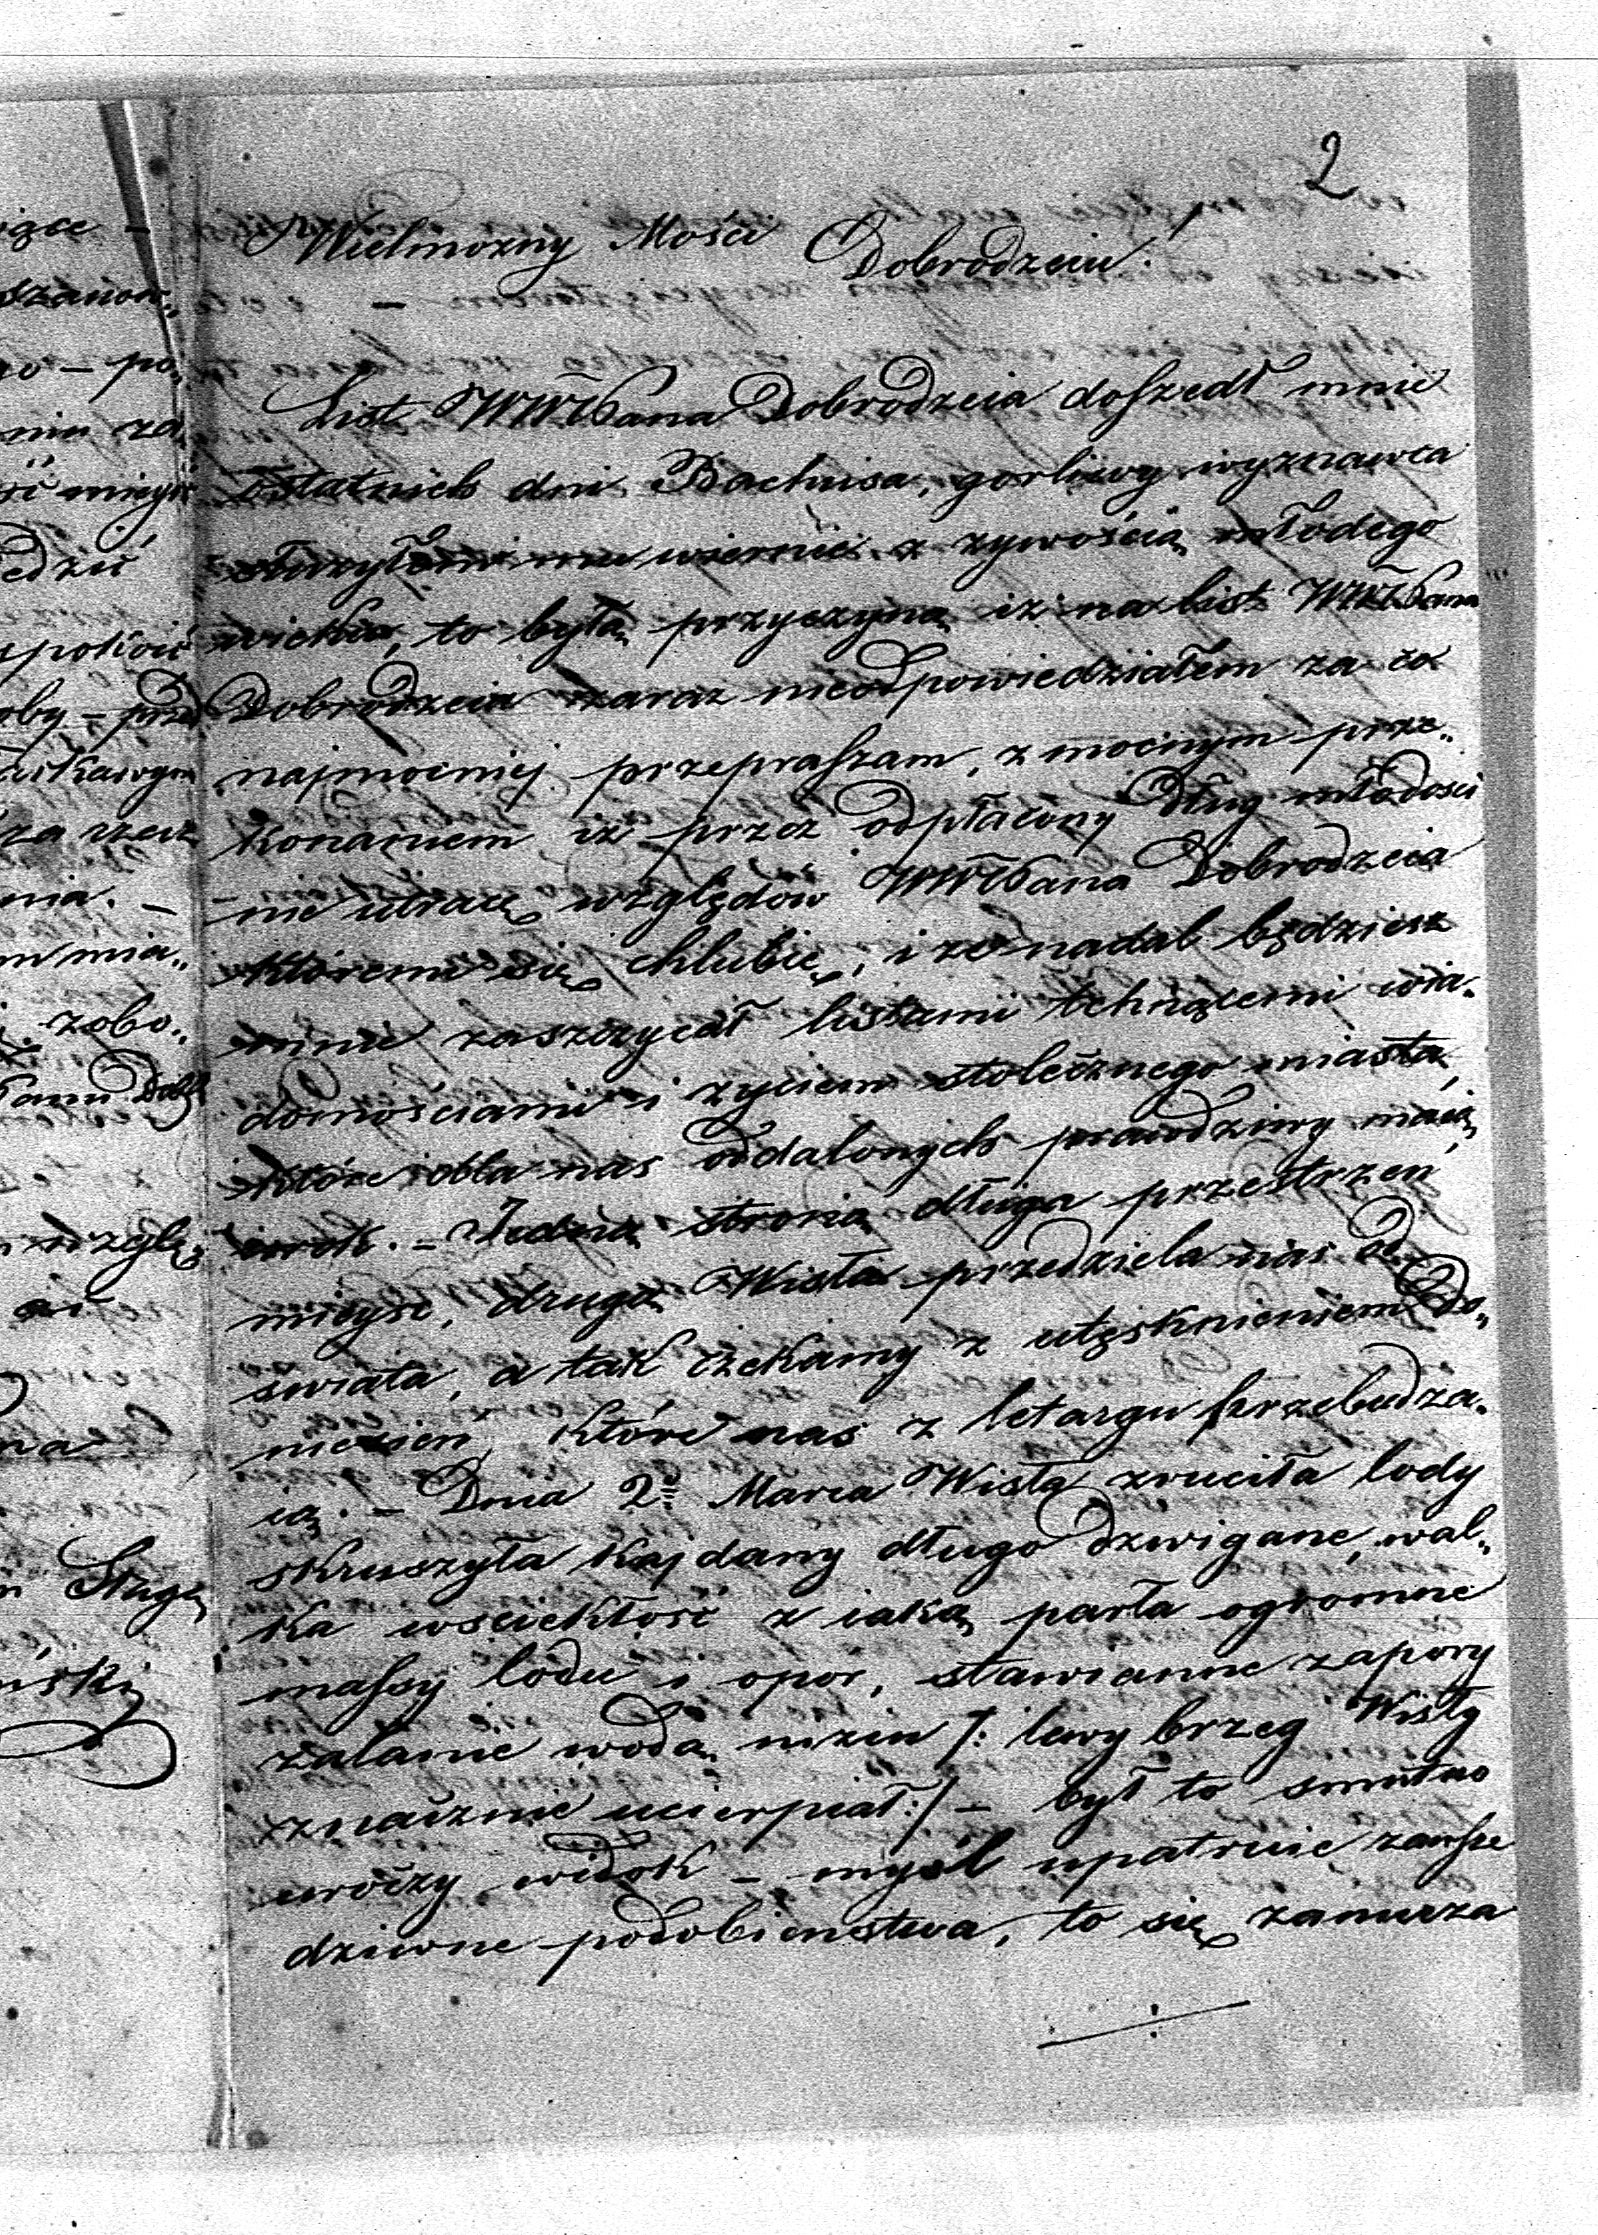 2
Wielmożny Mości Dobrodzeiu.
List WWPana Dobrodzeia doszedł mnie
ostatnich dni Bachusa, gorliwy wyznawca
służyłem mu wiernie z zywością młodego
wieku, to było przyczyną iż na list WWPana
Dobrodzeia zaraz nieodpowiedziałem za co
najmocniej przepraszam, z mocnym prze„
konaniem iż przez odpłacony dług młodości
nie utracę względow WWPana Dobrodzeia
któremi się chlubię, i że nadal będziesz
mnie zaszczycał listami tchnącemi wia„
domościami i życiem stołecznego miasta,
które dla nas oddalonych prawdziwy maią
urok. – Jedną stroną długa przestrzeń
mieysc, drugą Wisła przedziela nas od
swiata, a tak czekamy z utęsknieniem Do„
niesień, które nas z letargu przebudza„
ią. – Dnia 2º Marca Wisła zruciła lody
skruszyła kajdany długo dzwigane, wal„
ka wsciekłość z iaką parła ogromne
massy lodu i opór, stawianne zapory
zalanie wodą nizin /: lewy brzeg Wisły
znacznie ucierpiał :/ – był to smutno
uroczy widok – myśl upatruie zawsze
dziwne podobieństwa, to się zanurza